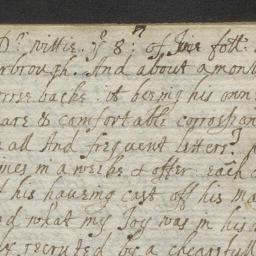 Dr. wittie. ye 8: of June foll:
rbrough. And about a mon
orse backe: it being his own
are & comfortable corrospon
all And frequent letters?
imes in a weeke & offer each
t his haveing cast off his Ma
nd what my Joy was in his
recruted by a chearfull